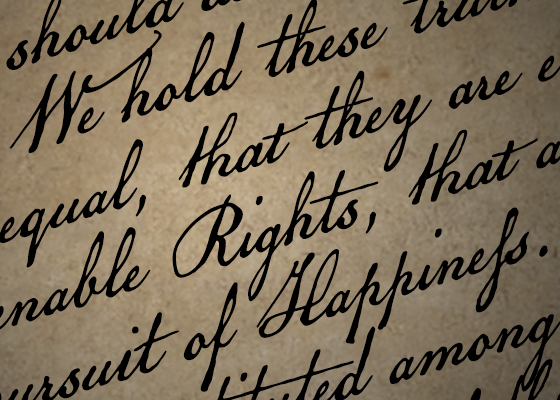 should
We hold these
equal, that they are e
enable Rights, that a
ursuit of Happineſs.
tituted among